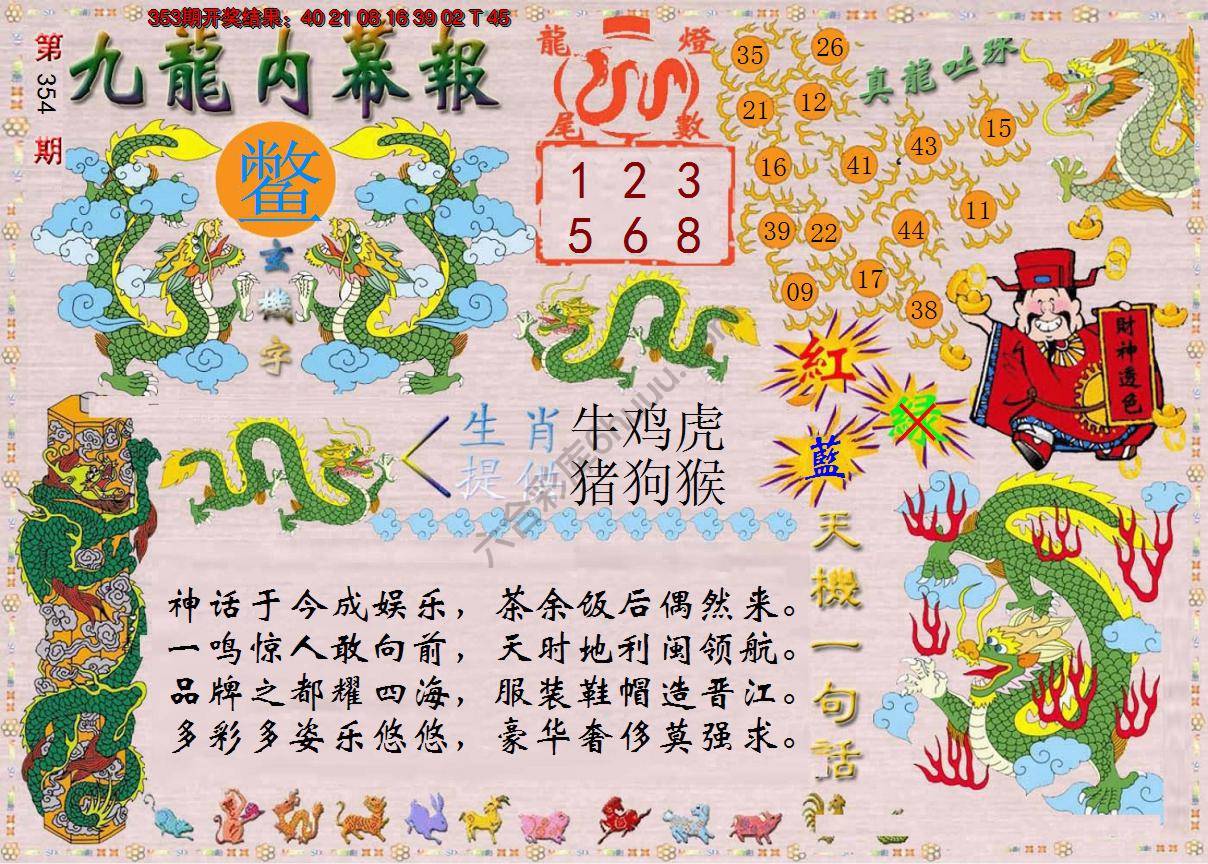 353期开奖结果：40 21 08 16 39 02 T 45
第354期
九龍内幕報
鳖
玄機字
龍燈
尾數
1 2 3
5 6 8
真龍吐珠
35 26
21 12
16 41 43 15
39 22 44 11
09 17 38
財神透色
紅
绿
藍
生肖 牛鸡虎
提供 猪狗猴
天機一句话
神话于今成娱乐，茶余饭后偶然来。
一鸣惊人敢向前，天时地利闽领航。
品牌之都耀四海，服装鞋帽造晋江。
多彩多姿乐悠悠，豪华奢侈莫强求。